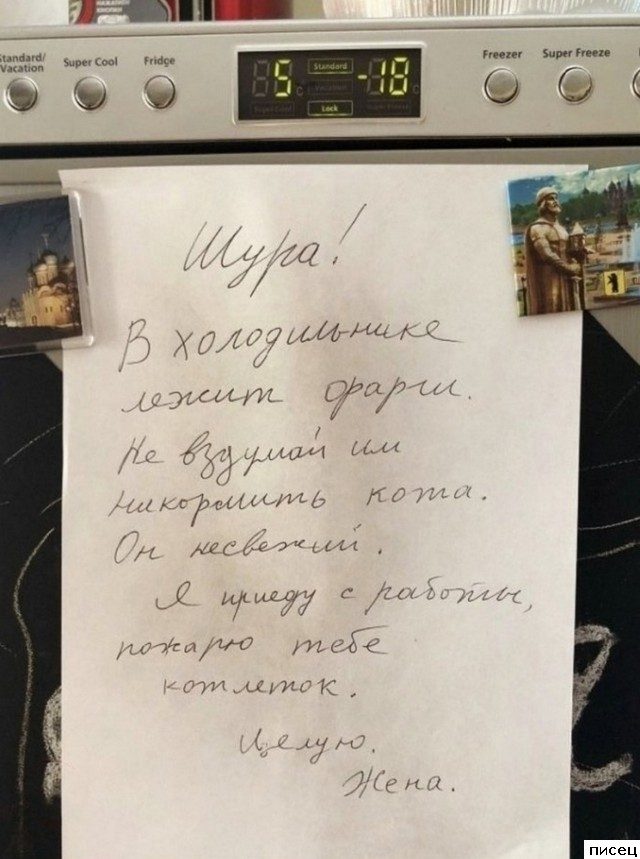 Standard/
Vacation
Super Cool
Fridge
5 °C
Standard
Vacation
Lock
-18 °C
Super Cool
Super Freeze
Freezer
Super Freeze
Шура!
В холодильнике
лежит фарш.
Не вздумай им
накормить кота.
Он несвежий.
Я приеду с работы,
пожарю тебе
котлеток.
Целую.
Жена.
писец